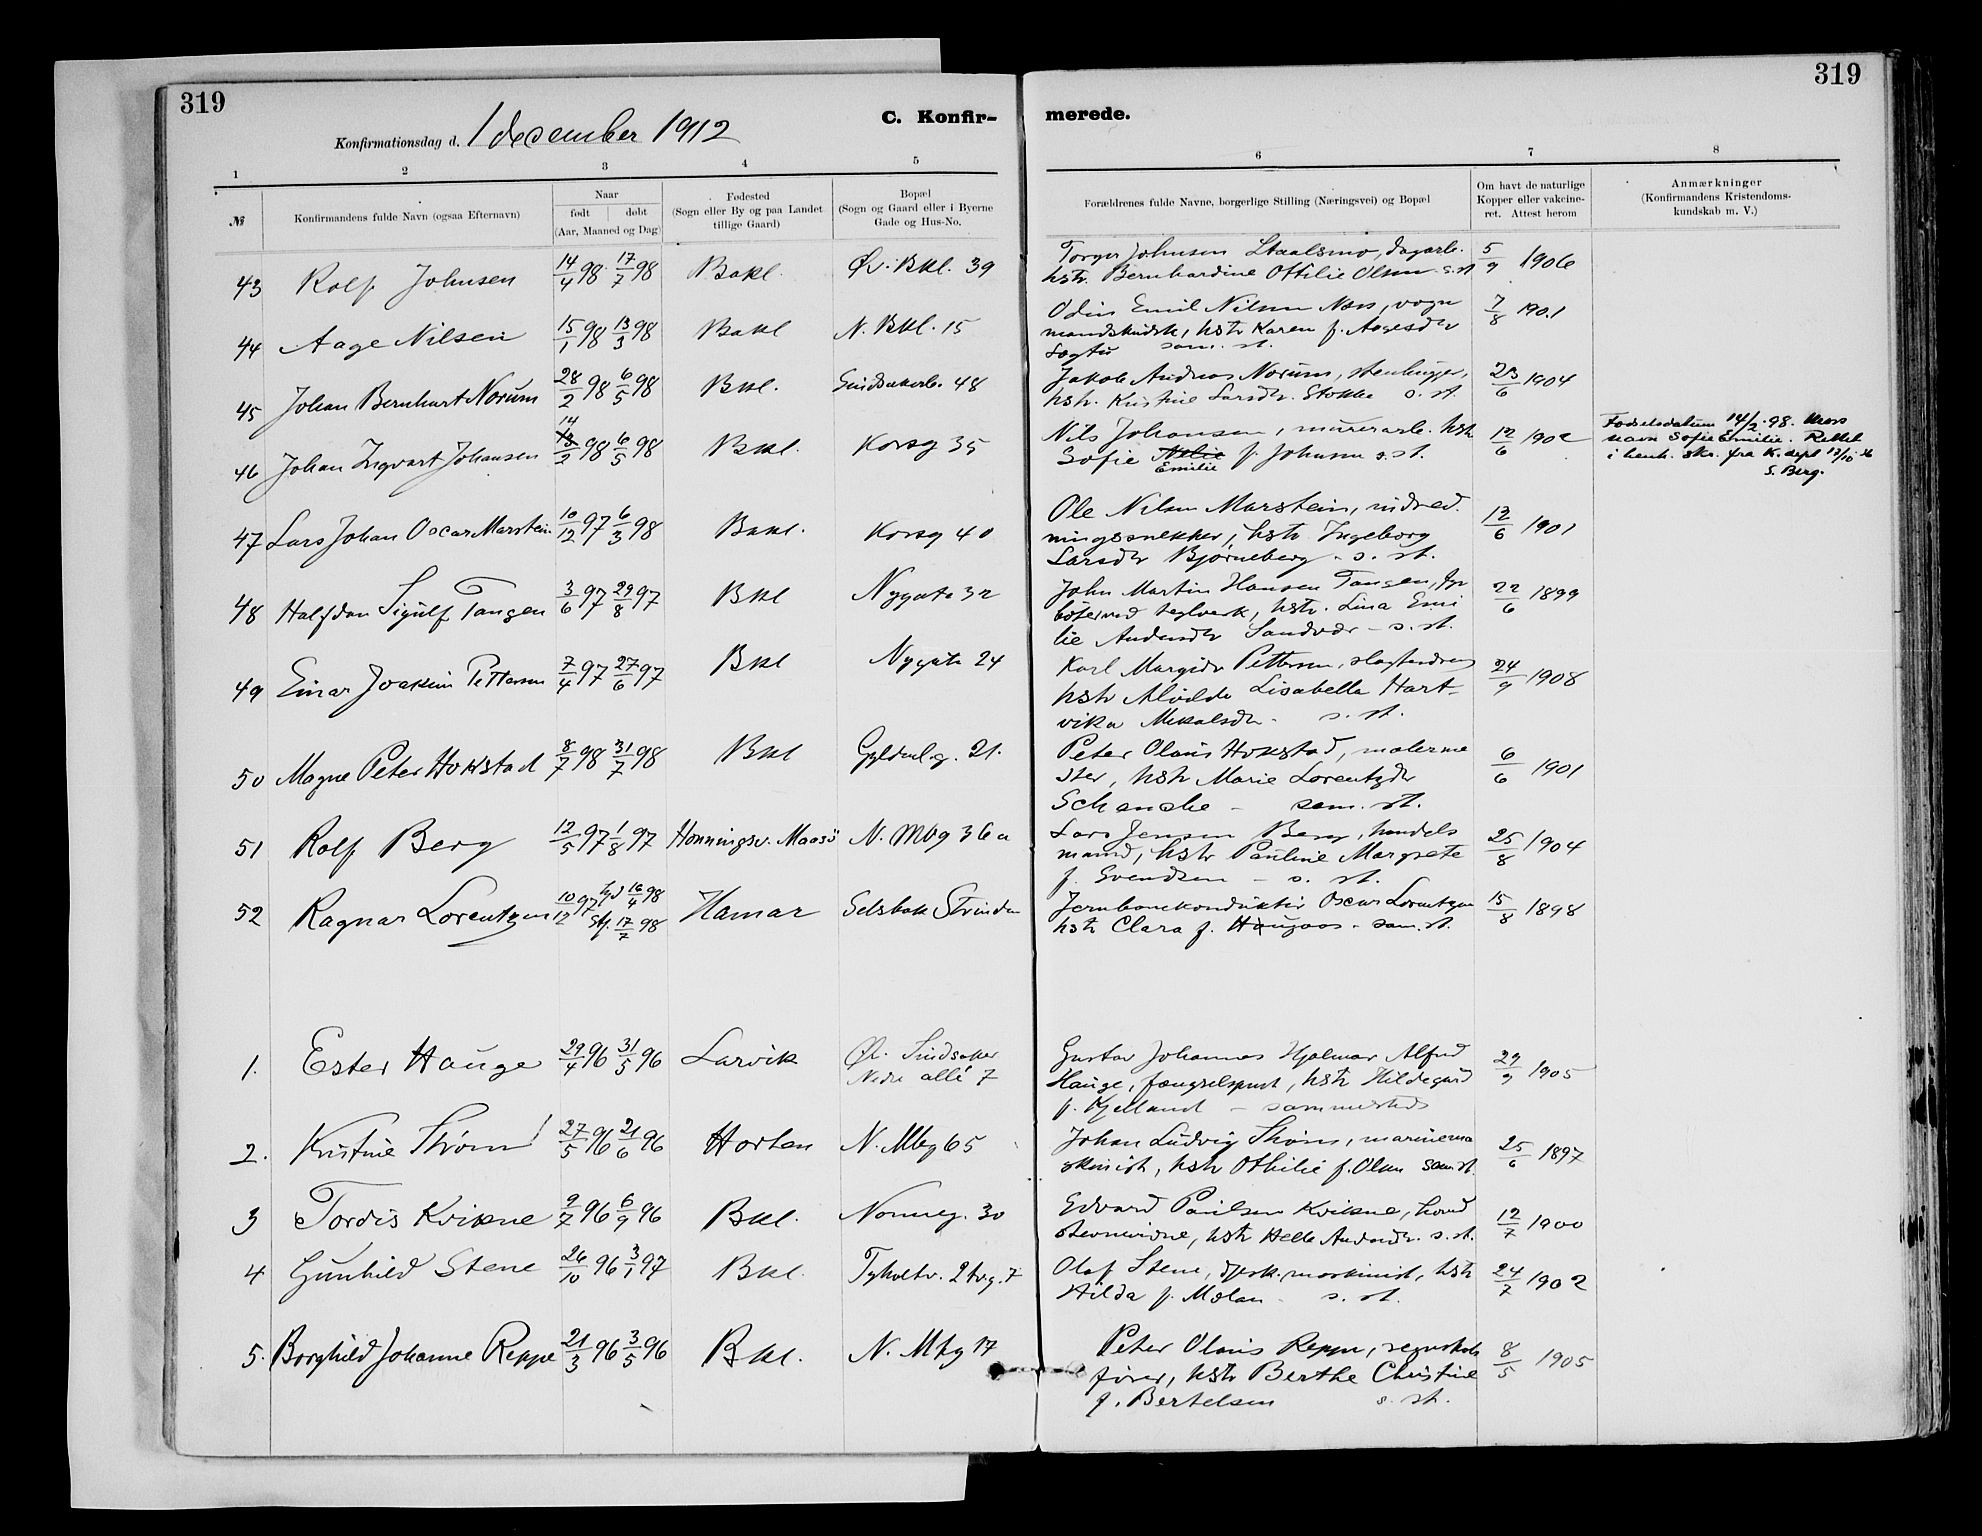 319
319
C. Konfir-
merede.
Konfirmationsdag d. 1 desember 1912
1 2 3 4 5 6 7 8
№
Konfirmandens fulde Navn (ogsaa Efternavn)
Naar
født døbt
(Aar, Maaned og Dag)
Fødested
(Sogn eller By og paa Landet
tillige Gaard)
Bopæl
(Sogn og Gaard eller i Byerne
Gade og Hus-No.
Forældrenes fulde Navne, borgerlige Stilling (Næringsvei) og Bopæl
Om havt de naturlige
Kopper eller vakcine-
ret. Attest herom
Anmærkninger
(Konfirmandens Kristendoms-
kundskab m. V.)
43 Rolf Johnsen 14/4 98 17/7 98 Bakl. Øv. Bkl. 39
Torger Johnsen Staalsmo, dagarb. 5/9 1906
hstr. Bernhardine Ottilie Olsen s. st
44 Aage Nilsen 15/1 98 13/3 98 Bakl N. Bkl. 15
Odin Emil Nilsen Næss, vogn 7/8 1901
mandskusk, hstr Karen f. Aagesdr
sam. st.
45 Johan Bernhart Norum 28/2 98 6/5 98 Bkl. 48
Jakob Andreas Norum, stenhugger, 23/6 1904
hstr. Kristine Larsdr. Stokke s. st.
46 Johan Ingvart Johansen 14/2 98 6/5 98 Bkl. Korsg 35
Nils Johansen, murerarb. hstr 12/6 1902
Sofie Emilie f. Johnsen s. st.
Fødselsdatum 14/2 - 98. Mors
navn Sofie Emilie. Rettet
i henh. skr. fra K. dept 13/10 36
S. Berg.
47 Lars Johan Oscar Marstein 10/12 97 6/3 98 Bakl. Korsg 40
Ole Nilsen Marstein, indred 12/6 1901
ningssnekker, hstr Ingeborg
Larsdr Bjørneberg - s. st.
48 Halfdan Sigulf Tangen 3/6 97 29/8 97 Bkl Nygata 32
John Martin Hansen Tangen, fyr 22/6 1899
bøter ved teglverk, hstr. Lina Emi
lie Andersdr Sandvær - s. st.
49 Einar Joakim Pettersen 7/4 97 27/6 97 Bkl Nygata 24
Karl Margido Pettersen, slagterdreng 24/9 1908
hstr Alvilde Lisabella Hart-
vika Mikalsdr - s. st.
50 Magne Peter Hokstad 8/7 98 31/7 98 Bkl Gyldenl.g. 21.
Peter Olaus Hokstad, malerme 6/6 1901
ster, hstr Marie Lorentzdr
Schanche - sam. st.
51 Rolf Berg 12/5 97 1/8 97 Honningsv. Maasø N. Mbg 36 a
Lars Jensen Berg, handels 25/8 1904
mand, hstr Pauline Margrete
f. Svendsen - s. st.
52 Ragnar Lorentzen 10/12 97 hjd 16/4 98 Stf. 17/7 98 Hamar Selsbak Strinden
Jernbanekonduktør Oscar Lorentzen 15/8 1898
hstr Clara f. Haugaas - sam. st.
1. Ester Hauge 29/4 96 31/5 96 Larvik Øv. Sindsaker
Nedre allé 7
Gustav Johannes Hjalmar Alfred 29/9 1905
Hauge, fængselsprest, hstr Hildegard
f. Kjelland - sammesteds
2. Kristine Strøm 27/5 96 21/6 96 Horten N. Mbg 65
Johan Ludvig Strøm, marinema 25/6 1897
skinist, hstr Othilie f. Olsen sam. st.
3 Tordis Kvikne 9/7 96 6/9 96 Bkl. Nonneg. 30
Edvard Paulsen Kvikne, hand 12/7 1900
hstr Helle Andersdr. s. st.
4 Gunhild Stene 26/10 96 3/1 97 Bkl. Tyholtv. 2 tvg. 7
Olaf Stene, maskinist, hstr 24/7 1902
Hilda f. Mælan - s. st.
5. Borghild Johanne Reppe 21/3 96 3/5 96 Bkl. N. Mbg 17
Peter Olaus Reppe, regnskabs 8/5 1905
fører, hstr Berthe Christine
f. Bertelsen s. st.